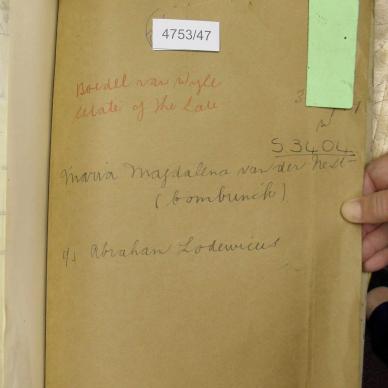 4753/47
Boedel van wyle
Estate of the Late
S3404
Maria Magdalena van der Nest
(born
y/s Abraham Lodewicus